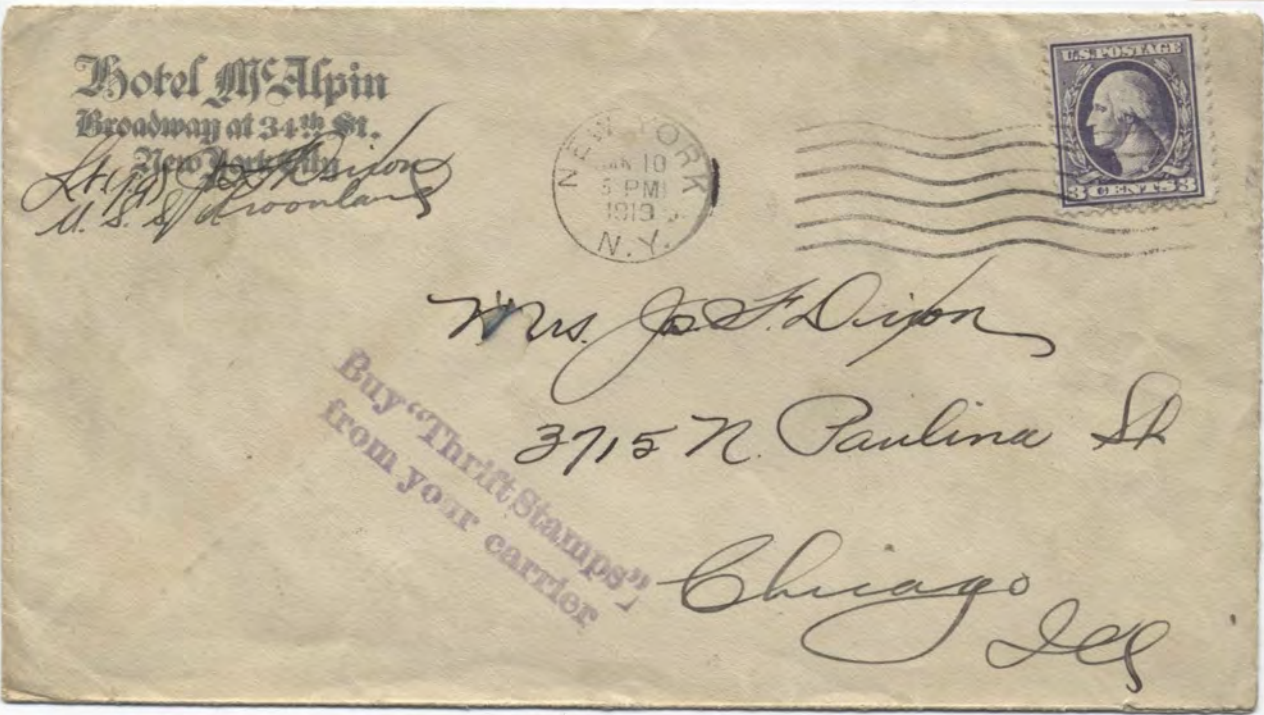 Hotel McAlpin
Broadway at 34th St.
New York City
Lt. (jg) Jo F. Dixon
U. S. S. Kroonland
NEW YORK
JAN 10
PM
1919
N.Y.
U.S. POSTAGE
3 CENTS 3
Mrs. Jo F. Dixon
3715 N. Paulina St
Chicago
Ill
Buy "Thrift Stamps",
from your carrier